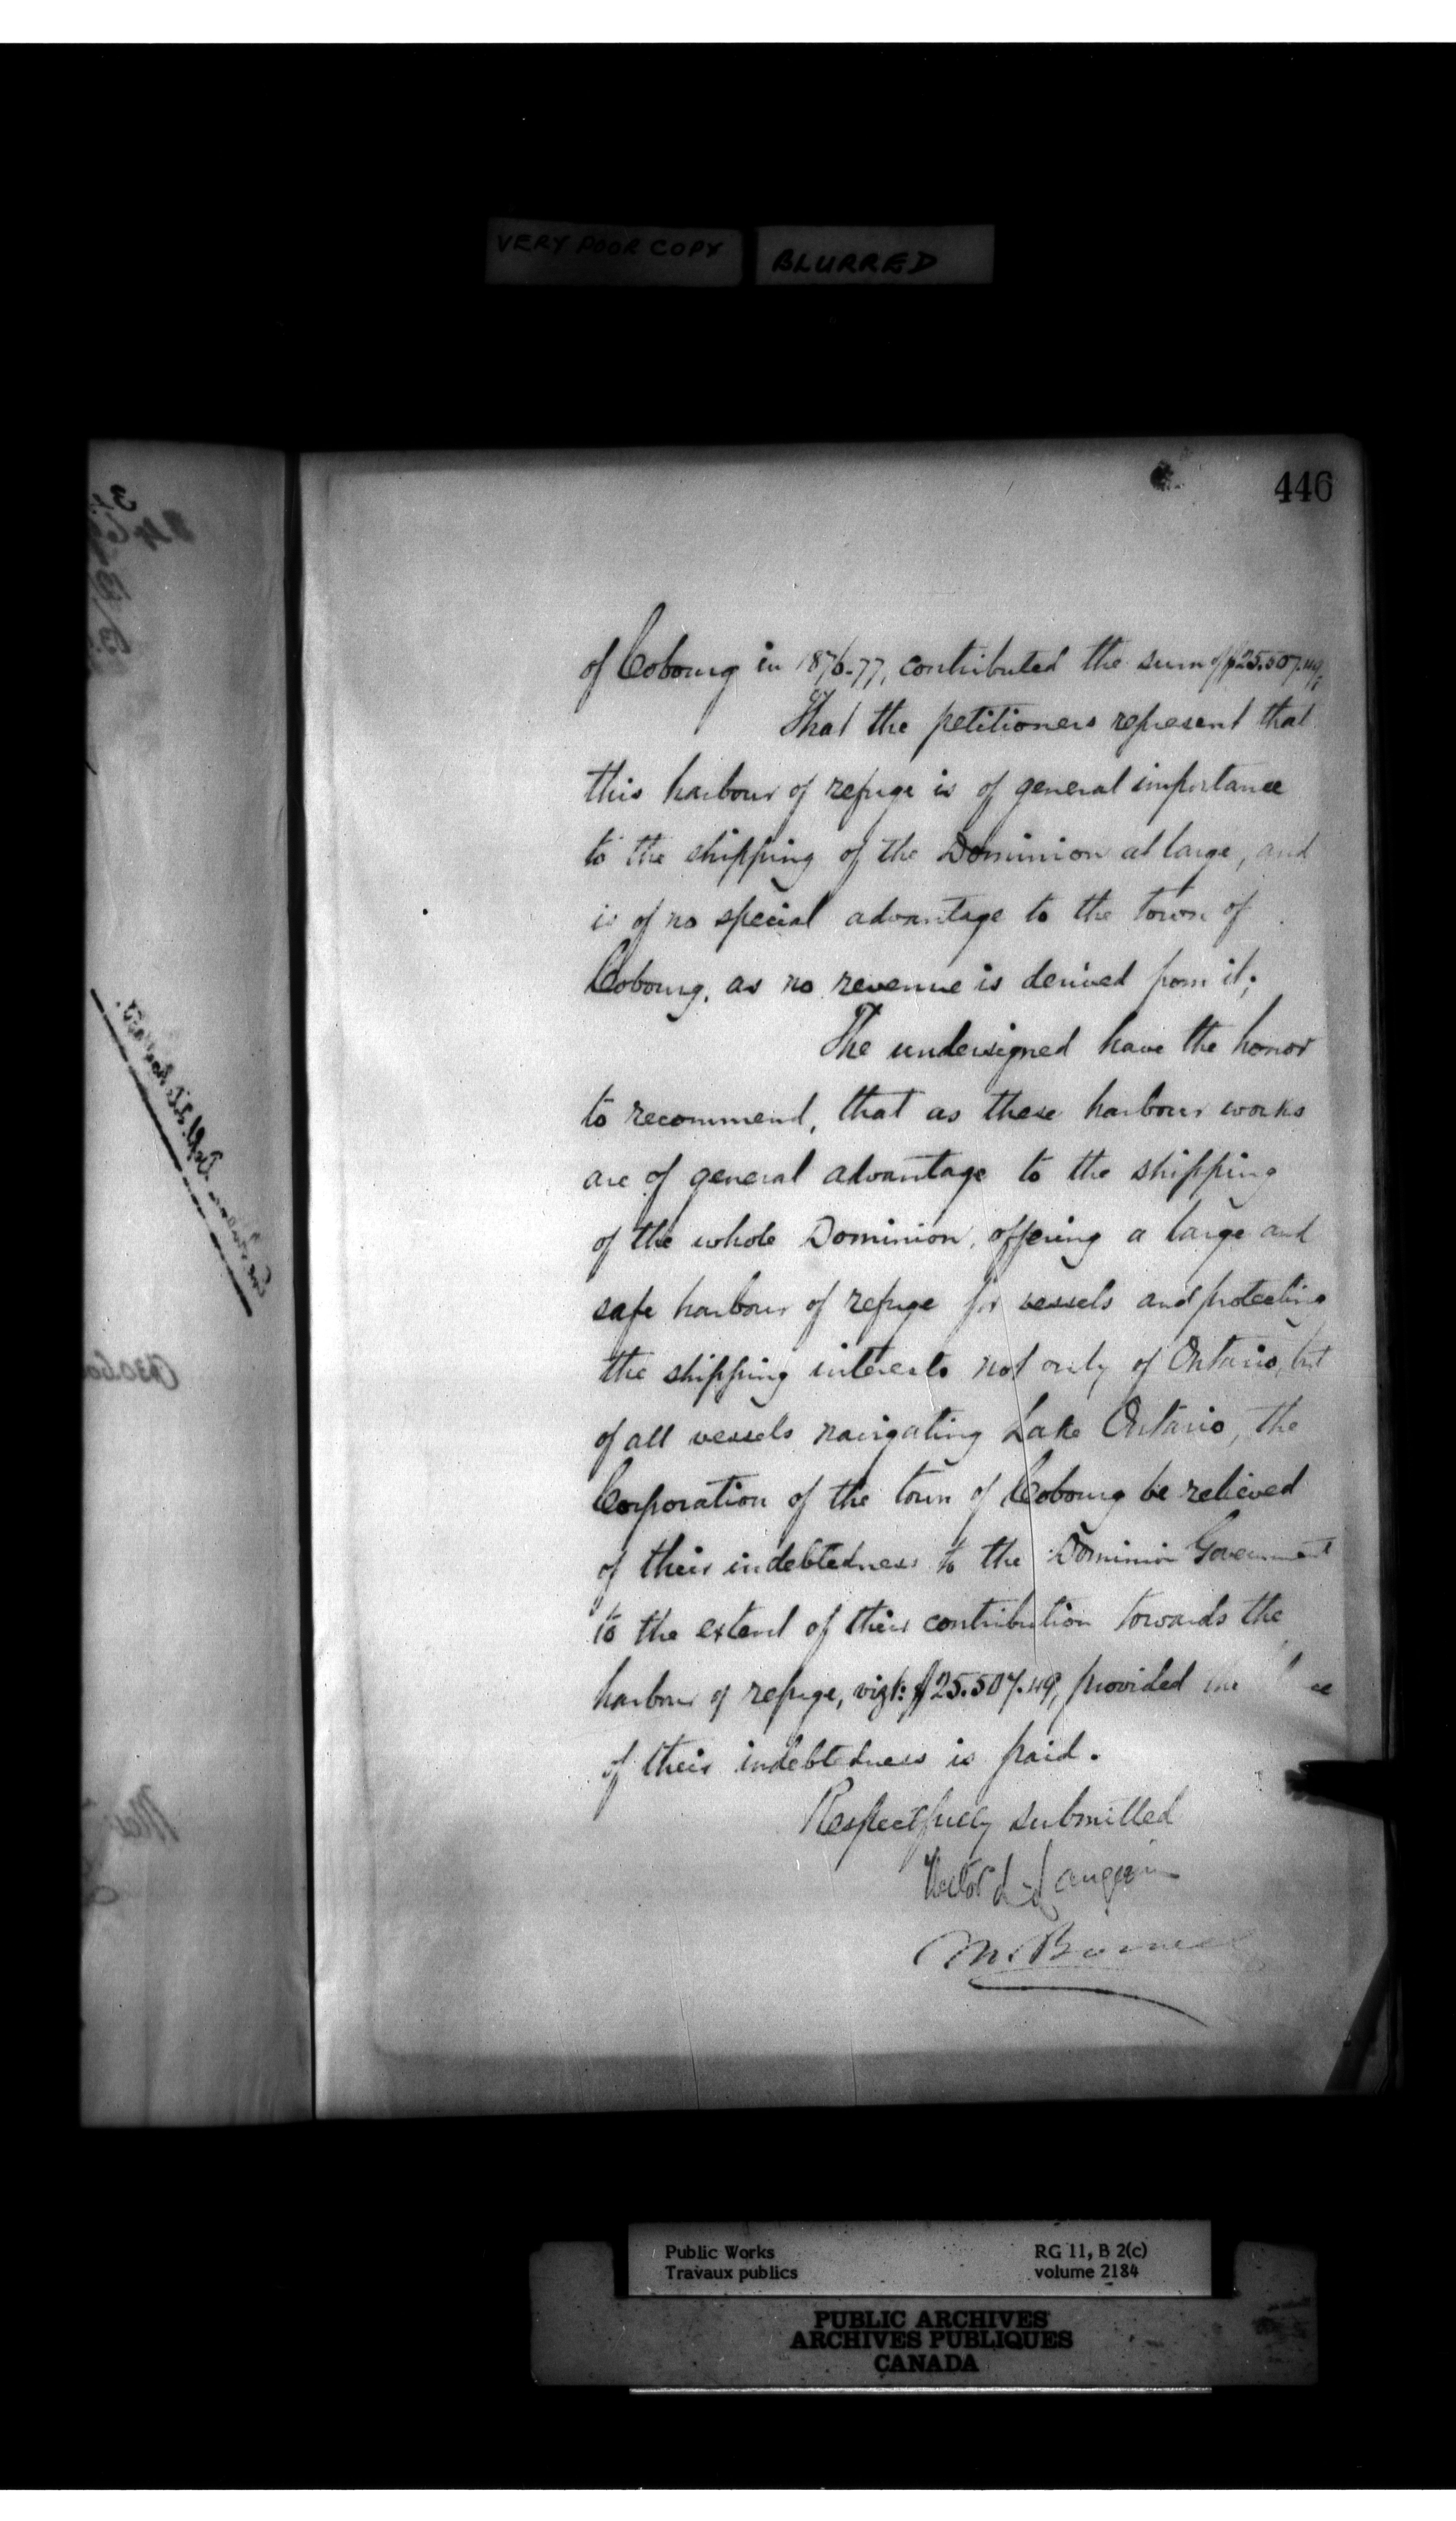 VERY POOR COPY
BLURRED
446
of Cobourg in 1876-77, contributed the sum of $25.507.49;
That the petitioners represent that
this harbour of refuge is of general importance
to the shipping of the Dominion at large, and
is of no special advantage to the town of
Cobourg, as no revenue is derived from it;
The undersigned have the honor
to recommend, that as these harbour works
are of general advantage to the shipping
of the whole Dominion, offering a large and
safe harbour of refuge for vessels and protecting
the shipping interests not only of Ontario, but
of all vessels navigating Lake Ontario, the
Corporation of the town of Cobourg be relieved
of their indebtedness to the Dominion Government
to the extent of their contribution towards the
harbour of refuge, vizt: $25.507.49, provided the
of their indebtedness is paid.
Respectfully submitted
Hector L. Langevin
M. Bowell
Public Works
Travaux publics
RG 11, B 2(c)
volume 2184
PUBLIC ARCHIVES
ARCHIVES PUBLIQUES
CANADA